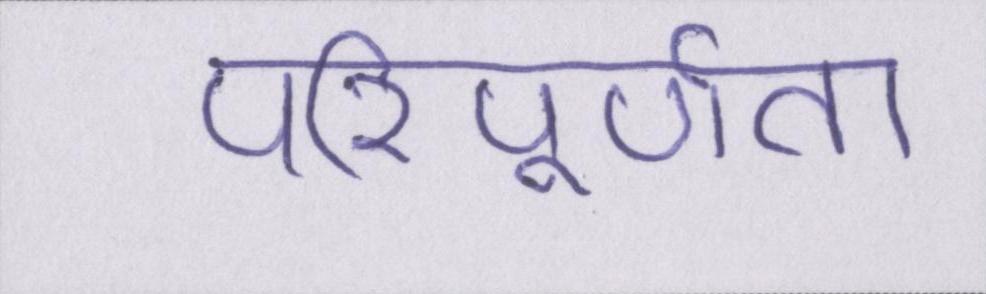 परिपूर्णता